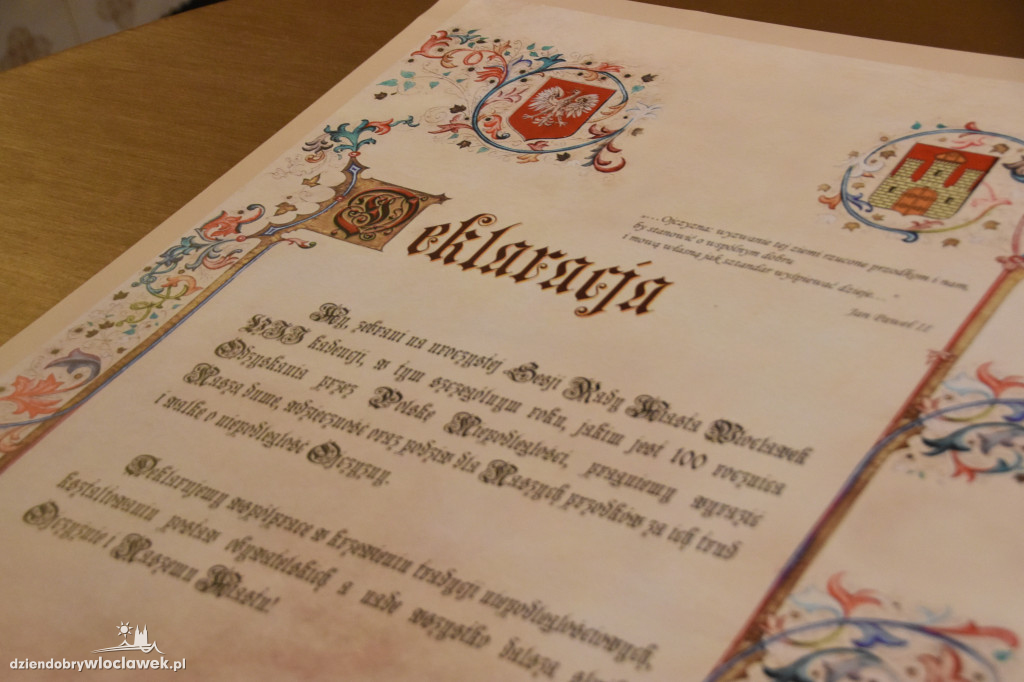 Deklaracja
„...Ojczyzna: wyzwanie tej ziemi rzucone przodkom i nam,
By stanowić o wspólnym dobru
i mową własną jak sztandar wyśpiewać dzieje..."
Jan Paweł II
My, zebrani na uroczystej Sesji Rady Miasta Włocławek
VII kadencji, w tym szczególnym roku, jakim jest 100 rocznica
Odzyskania przez Polskę Niepodległości, pragniemy wyrazić
Naszą dumę, wdzięczność oraz podziw dla Naszych przodków za ich trud
i walkę o niepodległość Ojczyzny.
Deklarujemy współpracę w krzewieniu tradycji niepodległościowych,
kształtowaniu postaw obywatelskich a nade wszystko dalszą
Ojczyźnie i Naszemu Miastu!
dziendobrywloclawek.pl